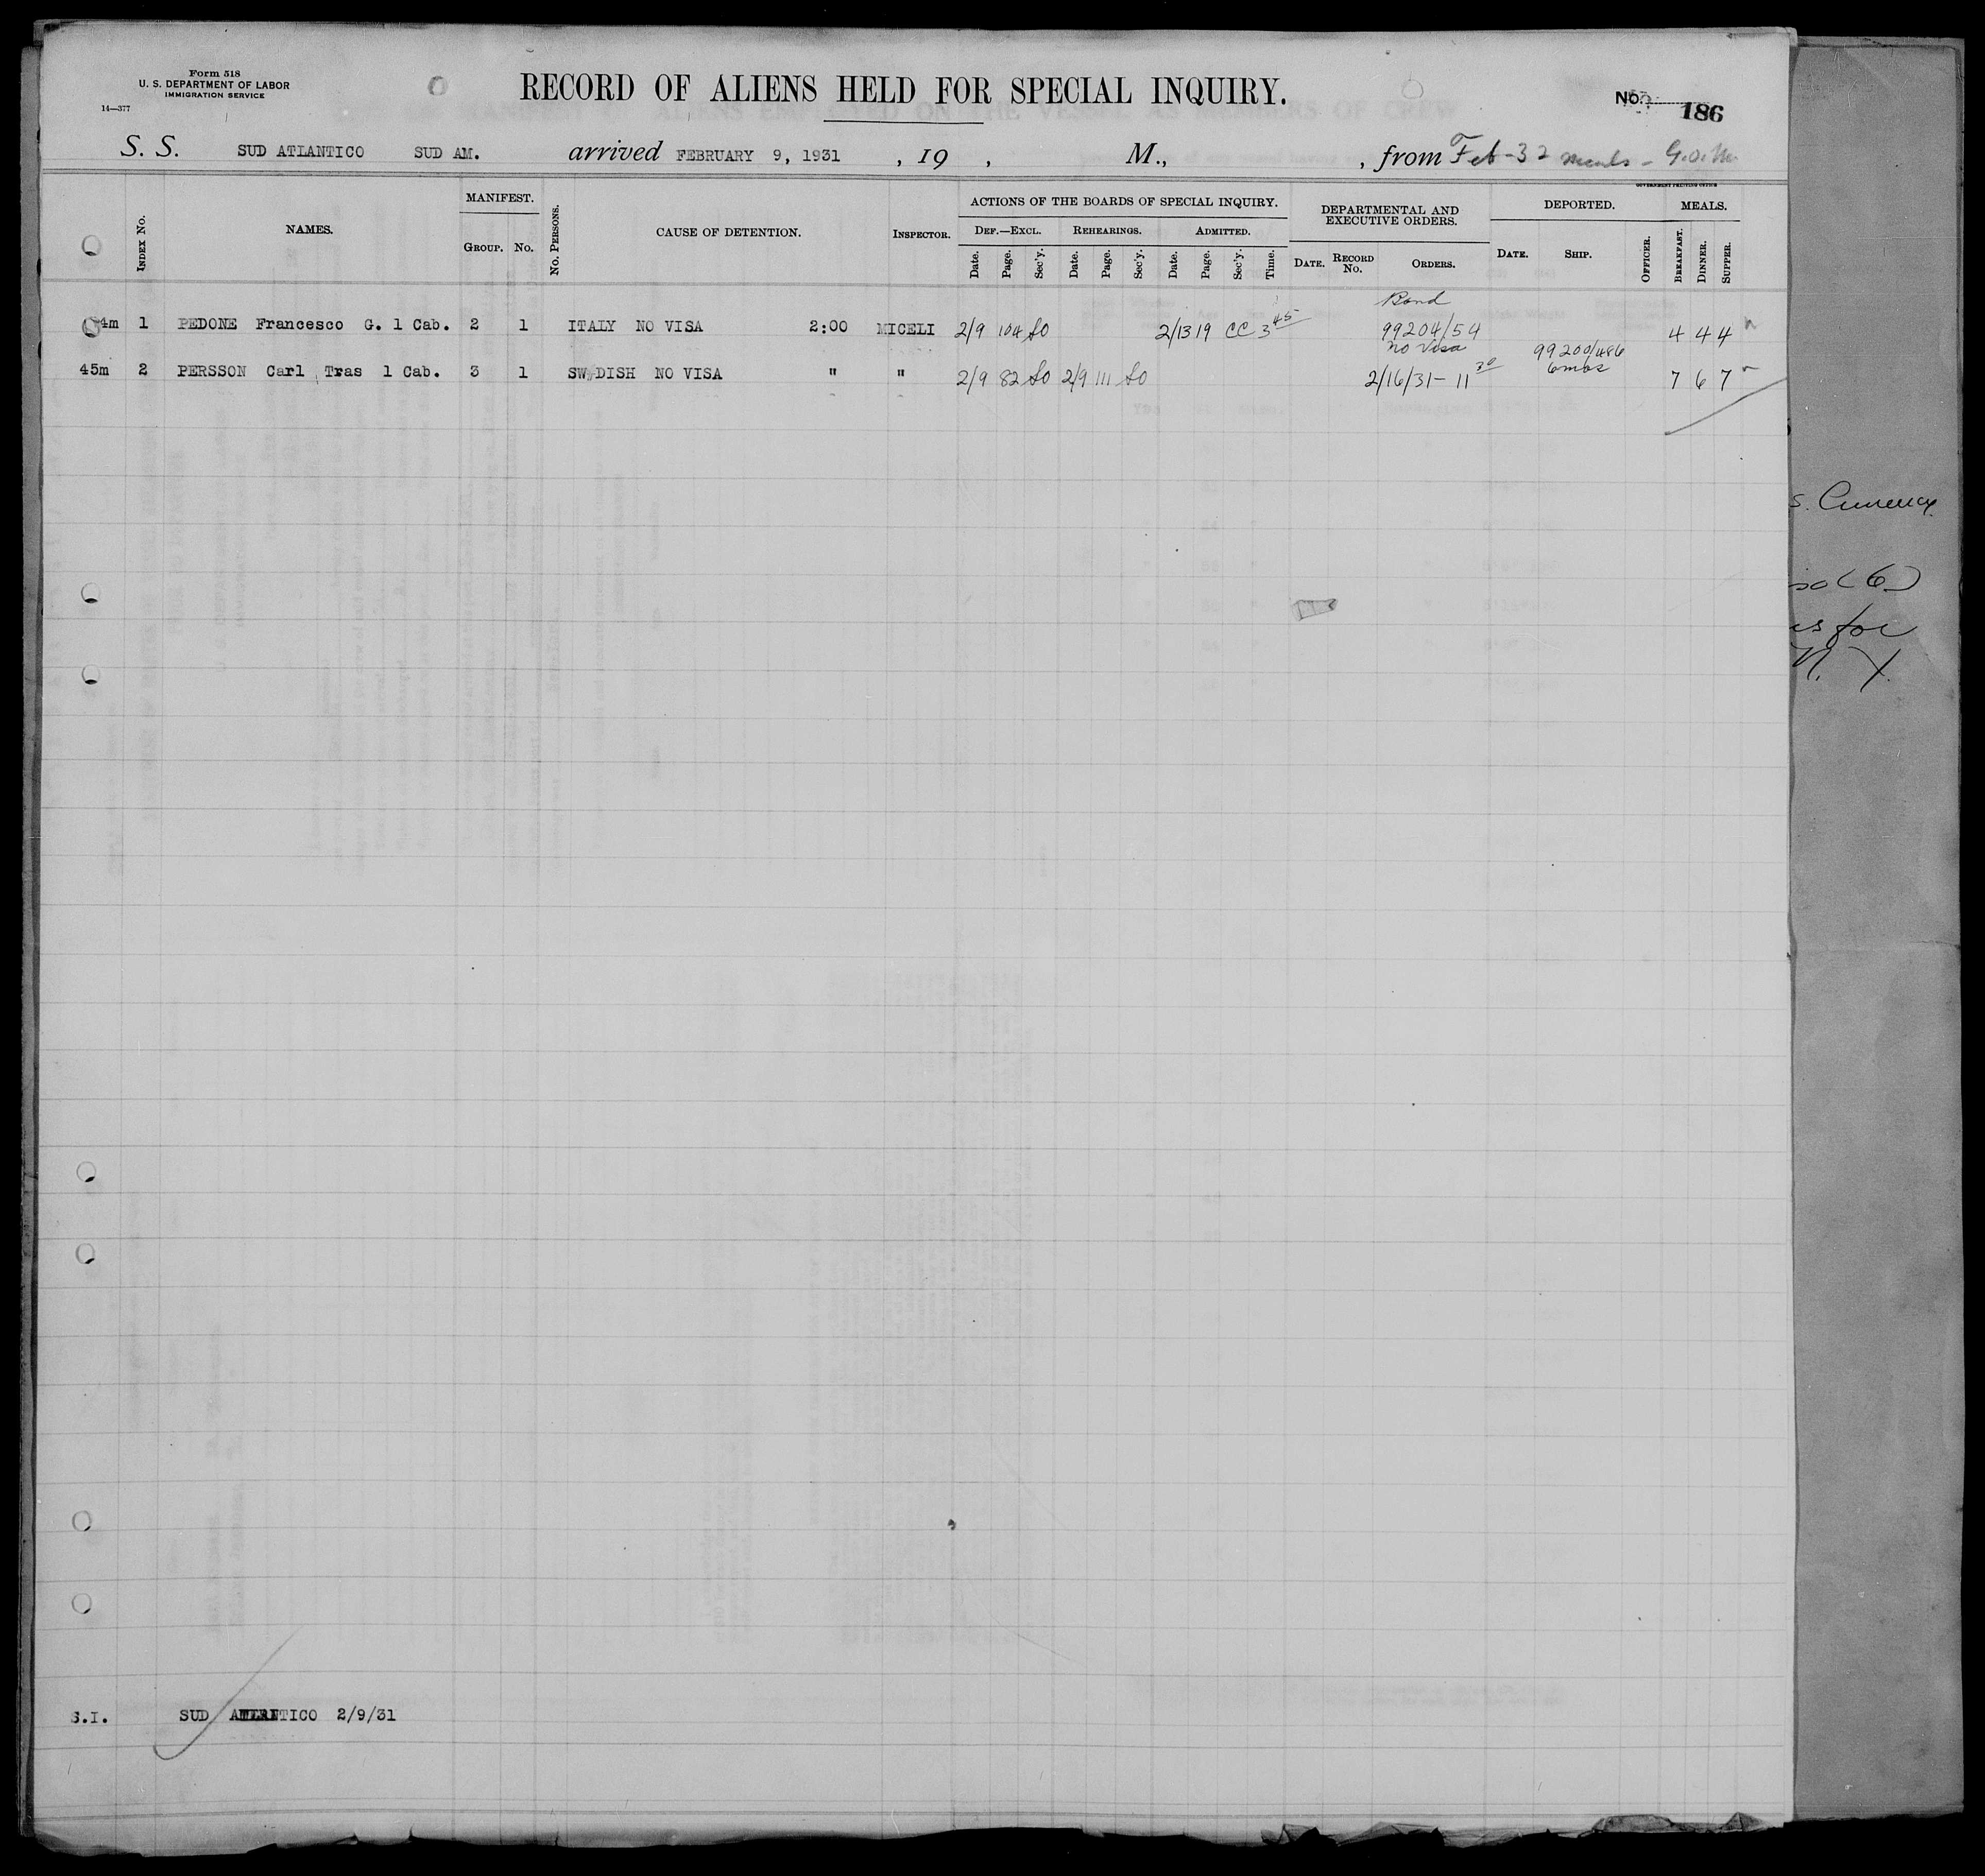 Form 518
U. S. DEPARTMENT OF LABOR
IMMIGRATION SERVICE
14—377
RECORD OF ALIENS HELD FOR SPECIAL INQUIRY.
No. 186
S. S. SUD ATLANTICO SUD AM. arrived FEBRUARY 9, 1931 , 19 , M., , from Feb - 32 meals -
GOVERNMENT PRINTING OFFICE
INDEX NO. NAMES. MANIFEST. GROUP. NO. NO. PERSONS. CAUSE OF DETENTION. INSPECTOR. ACTIONS OF THE BOARDS OF SPECIAL INQUIRY. DEPARTMENTAL AND EXECUTIVE ORDERS. DEPORTED. MEALS.
DEF.—EXCL. REHEARINGS. ADMITTED.
Date. Page. Sec'y. Date. Page. Sec'y. Date. Page. Sec'y. Time. DATE. RECORD NO. ORDERS. DATE. SHIP. OFFICER. BREAKFAST. DINNER. SUPPER.
Bond
4m 1 PEDONE Francesco G. 1 Cab. 2 1 ITALY NO VISA 2:00 MICELI 2/9 104 SO 2/13 19 CC 3 45 99204/54 4 4 4
No Visa 99200/486
45m 2 PERSSON Carl Tras 1 Cab. 3 1 SWEDISH NO VISA " " 2/9 82 SO 2/9 111 SO 2/16/31 - 11 30 6 mos 7 6 7
s. Currency.
(6)
is for
N. Y.
S.I. SUD ATLANTICO 2/9/31